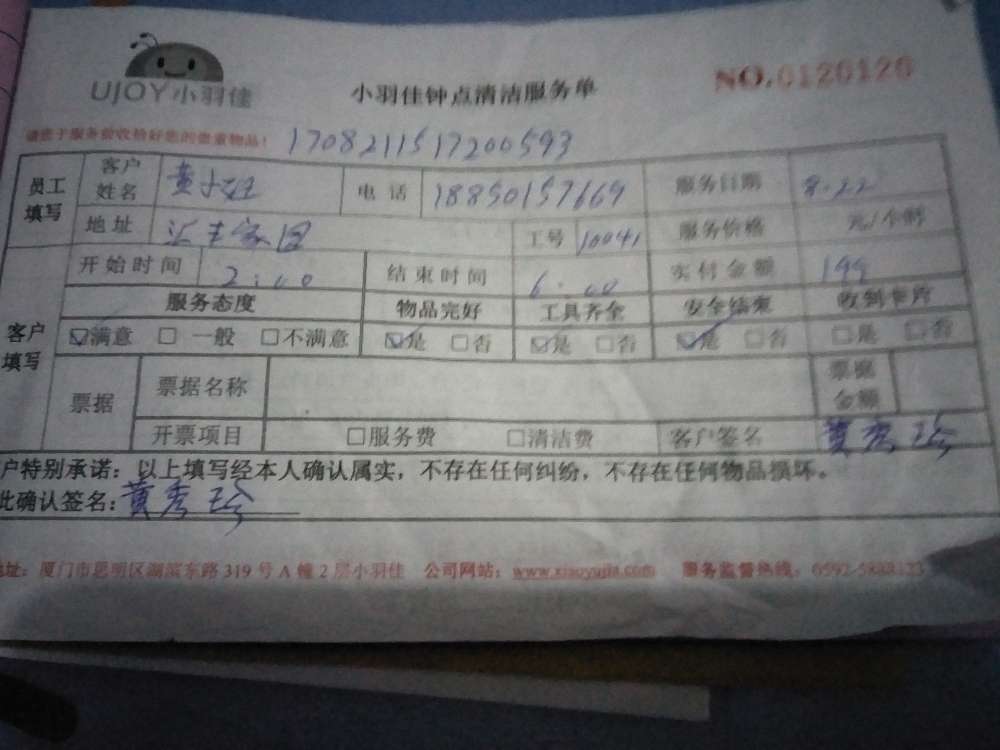 UJOY小羽佳
小羽佳钟点清洁服务单
NO.0120126
1708211517200593
员工填写 客户姓名 黄小姐 电话 18850157669 服务日期 8.22
地址 汇丰家园 工号 10041 服务价格 元/小时
开始时间 2:00 结束时间 6:00 实付金额 199
客户填写 服务态度 物品完好 工具齐全 安全结束 收到卡片
☑满意 □一般 □不满意 ☑是 □否 ☑是 □否 ☑是 □否 □是 □否
票据 票据名称 票据金额
开票项目 □服务费 □清洁费 客户签名 黄秀珍
户特别承诺：以上填写经本人确认属实，不存在任何纠纷，不存在任何物品损坏。
此确认签名：黄秀珍
地址：厦门市思明区湖滨东路319号A幢2层小羽佳 公司网站：www.xiaoyujia.com 服务监督热线：